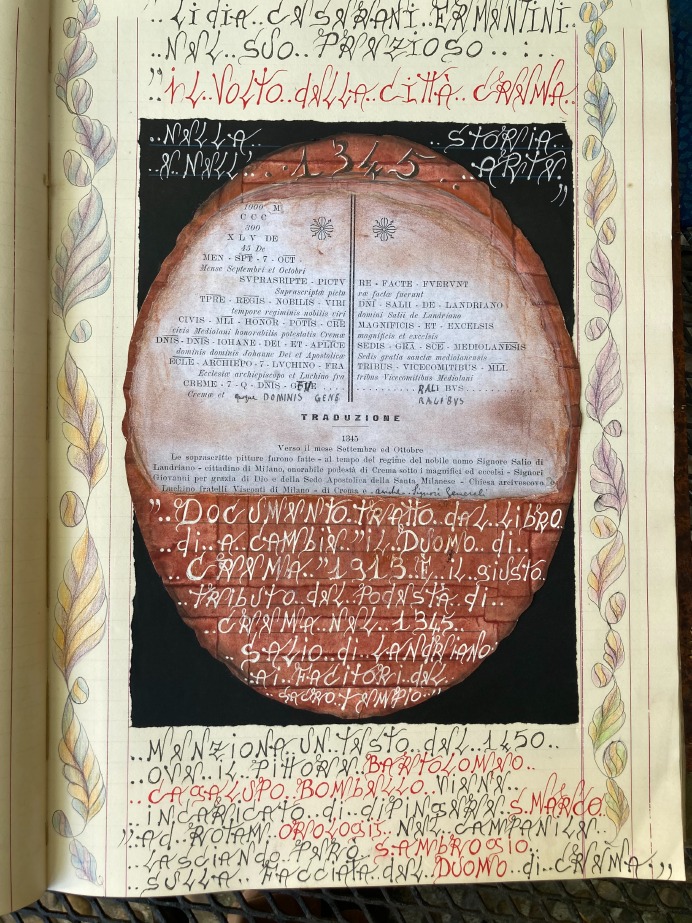 LIDIA CESERANI ERMENTINI
..NEL SUO PREZIOSO..:..
"iL..VOLTO..dELLA..CiTTÀ..CREMA..
..NELLA.. ..STORIA..
..E NELL'.. ..1345.. ..ARTE..”
1000 M
CCC
300
X L V DE
45 De
MEN - SPT - 7 - OCT
Mense Septembri et Octobri
SVPRASRIPTE - PICTV RE - FACTE - FVERVNT
Suprascriptæ pictu ræ factæ fuerunt
TPRE - REGIS - NOBILIS - VIRI DNI - SALII - DE - LANDRIANO
tempore regiminis nobilis viri domini Salii de Landriano
CIVIS - MLI - HONOR - POTIS - CRE MAGNIFICIS - ET - EXCELSIS
civis Mediolani honorabilis potestatis Cremæ magnificis et excelsis
DNIS - DNIS - IOHANE - DEI - ET - APLICE SEDIS - GRA - SCE - MEDIOLANESIS
dominis dominis Johanne Dei et Apostolicæ Sedis gratia sanctæ mediolanensis
ECLE - ARCHIEPO - 7 - LVCHINO - FRA TRIBUS - VICECOMITIBUS - MLI.
Ecclesiæ archiepiscopo et Luchino fra tribus Vicecomitibus Mediolani
CREME - 7 - Q - DNIS - GENE RALI BVS
Cremæ et queque DOMINIS GENE RALIBVS
TRADUZIONE
1345
Verso il mese Settembre ed Ottobre
Le soprascritte pitture furono fatte - al tempo del regime del nobile uomo Signore Salio di
Landriano - cittadino di Milano, onorabile podestà di Crema sotto i magnifici ed eccelsi - Signori
Giovanni per grazia di Dio e della Sede Apostolica della Santa Milanese - Chiesa arcivescovo e
Luchino fratelli Visconti di Milano - di Crema e anche Signori Generali
"..DOCUMENTO.TRATTO.dAL.LIBRO.
..di..A CAMBIE.."iL DUOMO..di..
..CREMA.."1913.È iL giusto.
..TRibUTO..dEL.POdESTÀ di..
..CREMA NEL..1345.
..SALIO..di LANdRiANO
..Ai FACiTORi dEL
..SACRO TEMPIO.."
..MENZIONA UN TESTO dEL..1450..
..OVE..iL PITTORE BARTOLOMEO..
..CAGALUPO BOMBELLO ViENE..
..iNCARICATO..di..diPiNGERE S.MARCO.
"Ad ROTAM OROLOGIS..NEL CAMPANILE
..LASCiANdO PERO S.AMBROGIO
..SULLA FACCIATA dEL DUOMO di CREMA..”